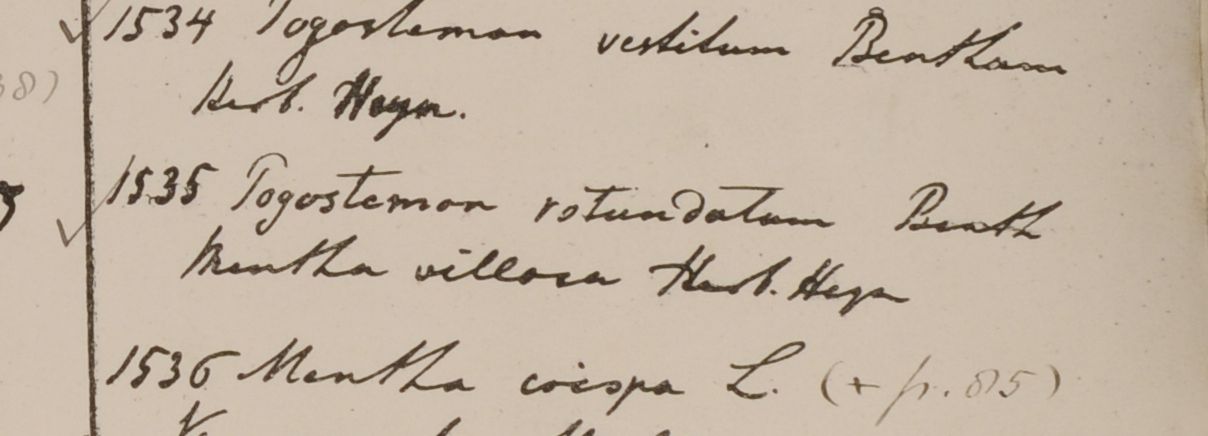 1534 Pogostemon vestitum Bentham
Herb. Heyn.
1535 Pogostemon rotundatum Benth
Mentha villosa Herb. Heyn
1536 Mentha crispa L. (+ p. 85)